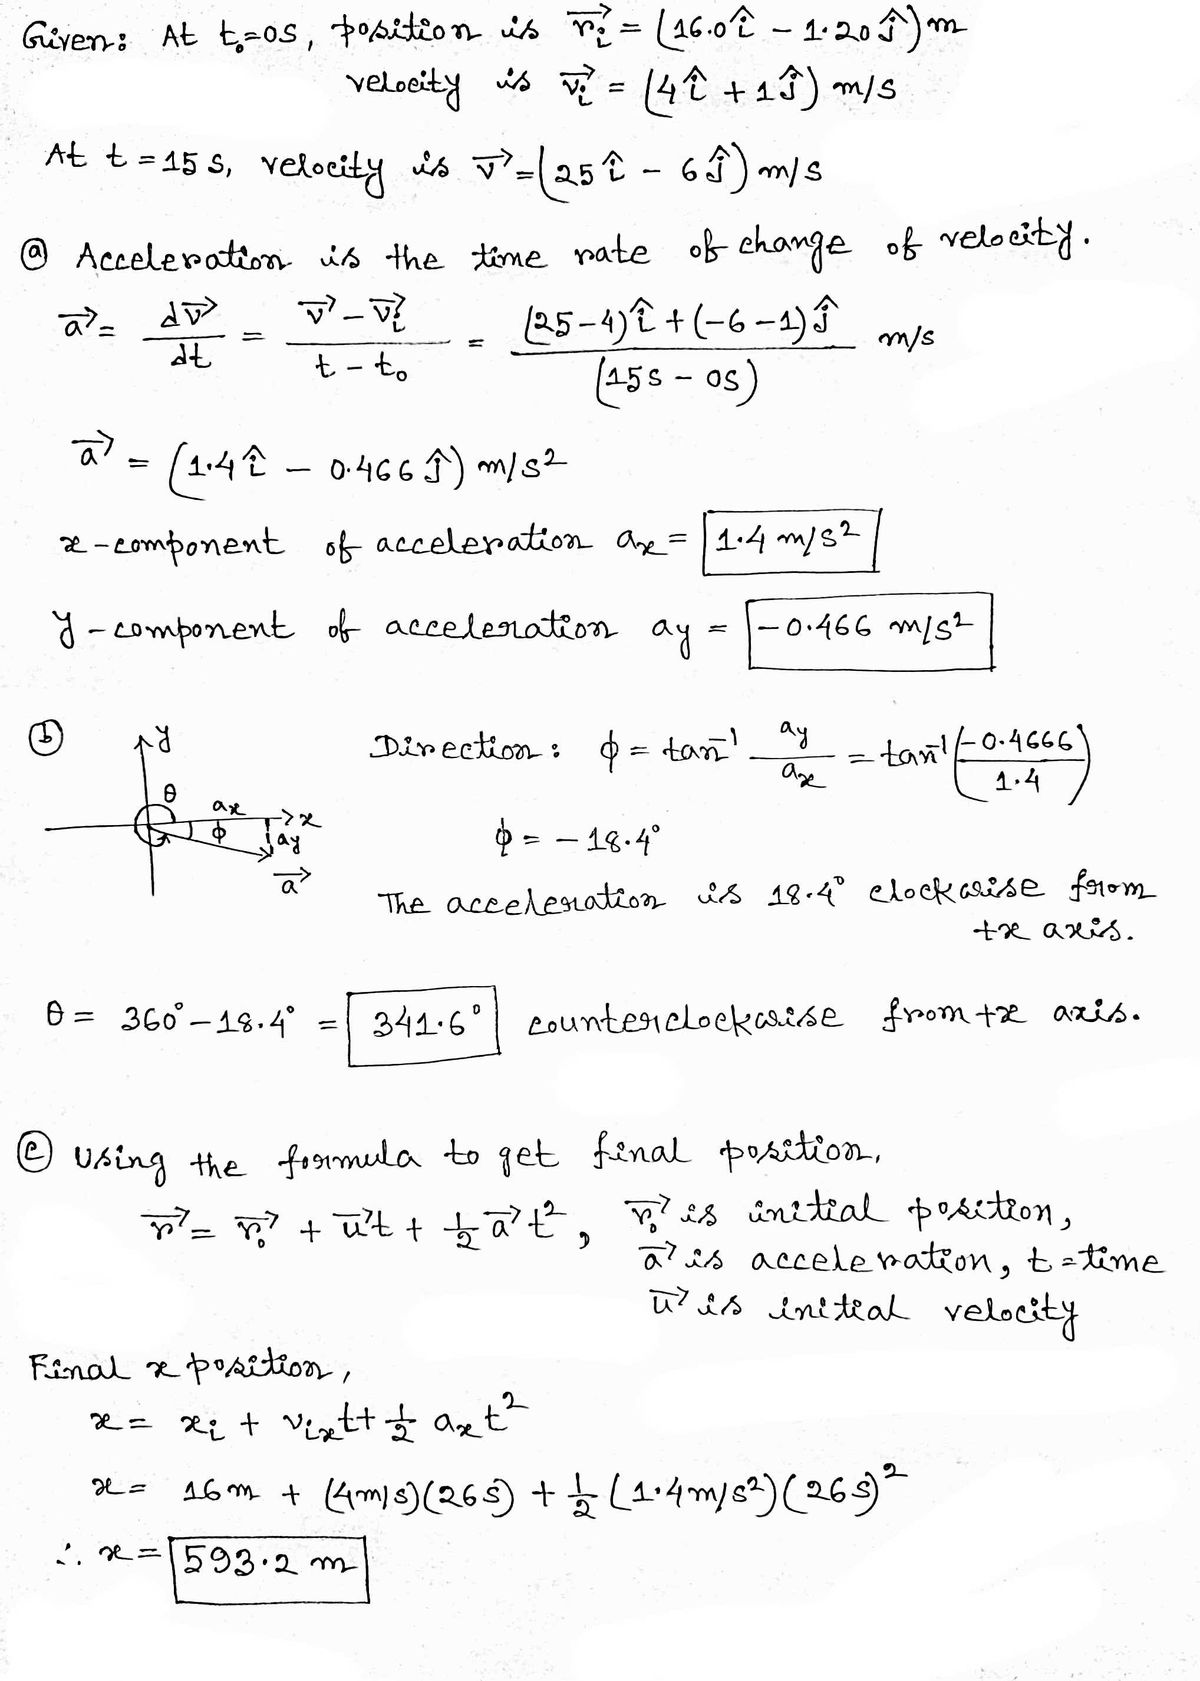 Given: At t₀=0s, position is r⃗ᵢ = (16.0î - 1.20ĵ) m
velocity is v⃗ᵢ = (4î + 1ĵ) m/s
At t = 15 s, velocity is v⃗ = (25î - 6ĵ) m/s
ⓐ Acceleration is the time rate of change of velocity.
a⃗ = dv⃗/dt = (v⃗ - v⃗ᵢ)/(t - t₀) = ((25-4)î + (-6-1)ĵ)/(15s - 0s) m/s
a⃗ = (1.4î - 0.466ĵ) m/s²
x-component of acceleration aₓ = 1.4 m/s²
y-component of acceleration ay = -0.466 m/s²
ⓑ
y
θ
aₓ
x
ϕ
ay
a⃗
Direction: ϕ = tan⁻¹ ay/aₓ = tan⁻¹(-0.4666/1.4)
ϕ = -18.4°
The acceleration is 18.4° clockwise from
+x axis.
θ = 360° - 18.4° = 341.6° counterclockwise from +x axis.
ⓒ Using the formula to get final position,
r⃗ = r⃗₀ + u⃗t + ½ a⃗t², r⃗₀ is initial position,
a⃗ is acceleration, t = time
u⃗ is initial velocity
Final x position,
x = xᵢ + vᵢₓt + ½ aₓt²
x = 16m + (4m/s)(26s) + ½ (1.4m/s²)(26s)²
∴ x = 593.2 m